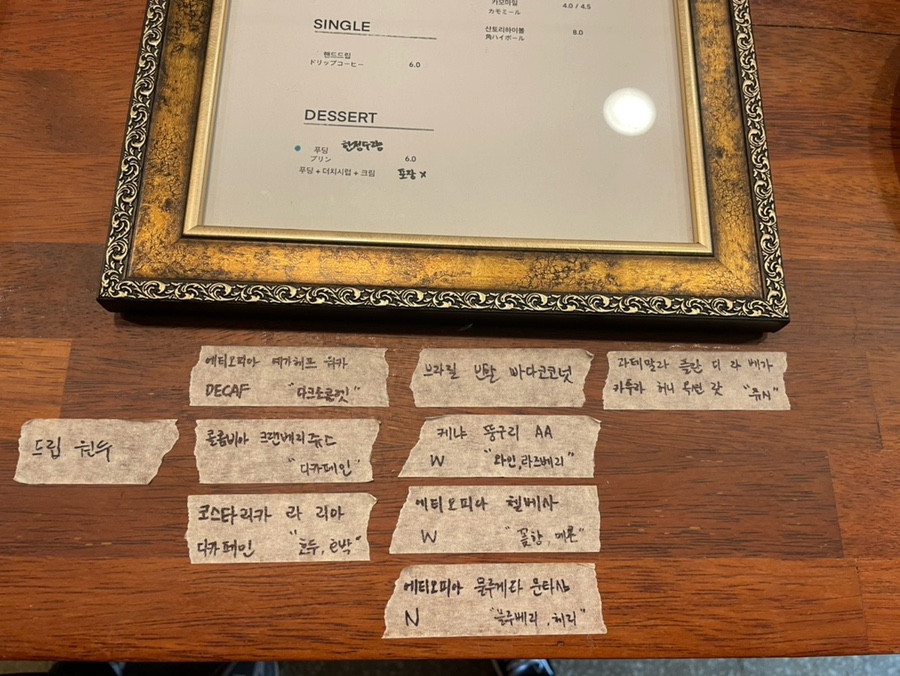 카모마일
カモミール 4.0 / 4.5
산토리하이볼
角ハイボール 8.0
SINGLE
핸드드립
ドリップコーヒー 6.0
DESSERT
푸딩 한정수량
プリン 6.0
푸딩 + 더치시럽 + 크림 포장 x
드립 원두
에티오피아 예가체프 워카
DECAF "다크초콜릿"
콜롬비아 크랜베리쥬스
"디카페인"
코스타리카 라 리아
디카페인 "호두, 호박"
브라질 바다코코넛
케냐 뚱구리 AA
W "와인, 라즈베리"
에티오피아 첼베사
W "꽃향, 메론"
에티오피아 물루게타 문타샤
N "블루베리, 체리"
과테말라 플랜 디 라 베가
카투라 허니